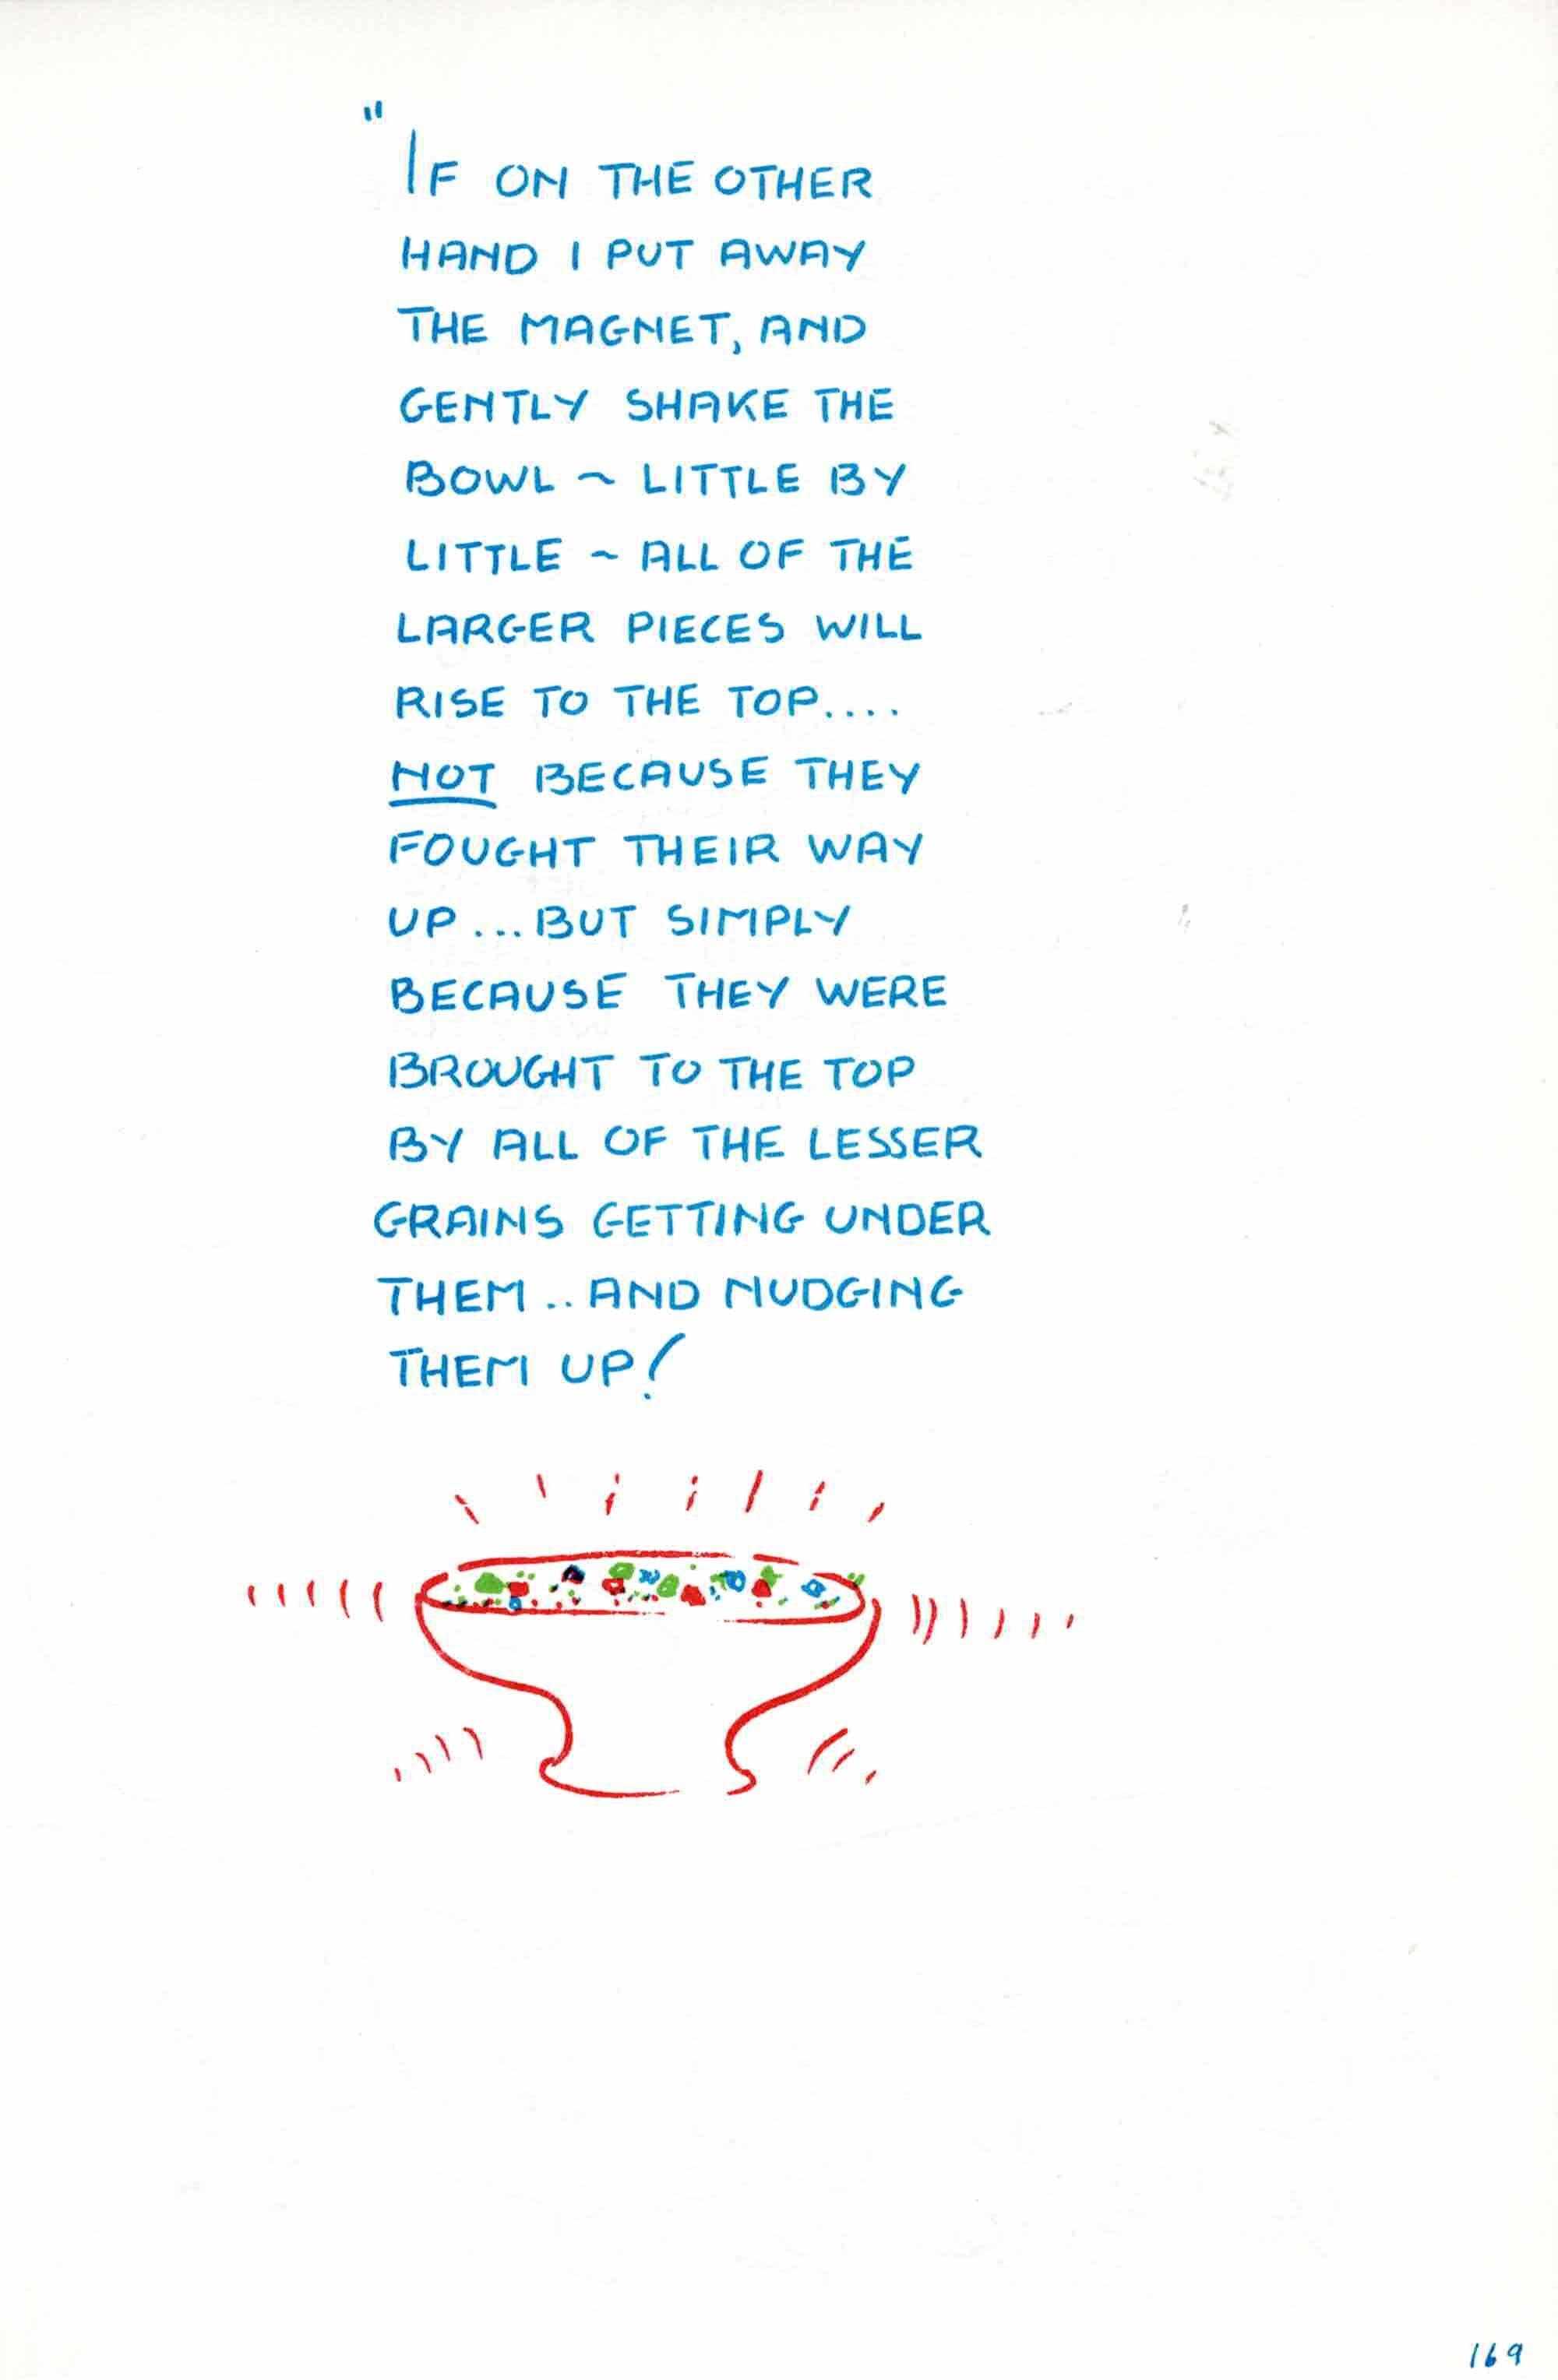 "
IF ON THE OTHER
HAND I PUT AWAY
THE MAGNET, AND
GENTLY SHAKE THE
BOWL ~ LITTLE BY
LITTLE ~ ALL OF THE
LARGER PIECES WILL
RISE TO THE TOP....
NOT BECAUSE THEY
FOUGHT THEIR WAY
UP...BUT SIMPLY
BECAUSE THEY WERE
BROUGHT TO THE TOP
BY ALL OF THE LESSER
GRAINS GETTING UNDER
THEM..AND NUDGING
THEM UP!
169